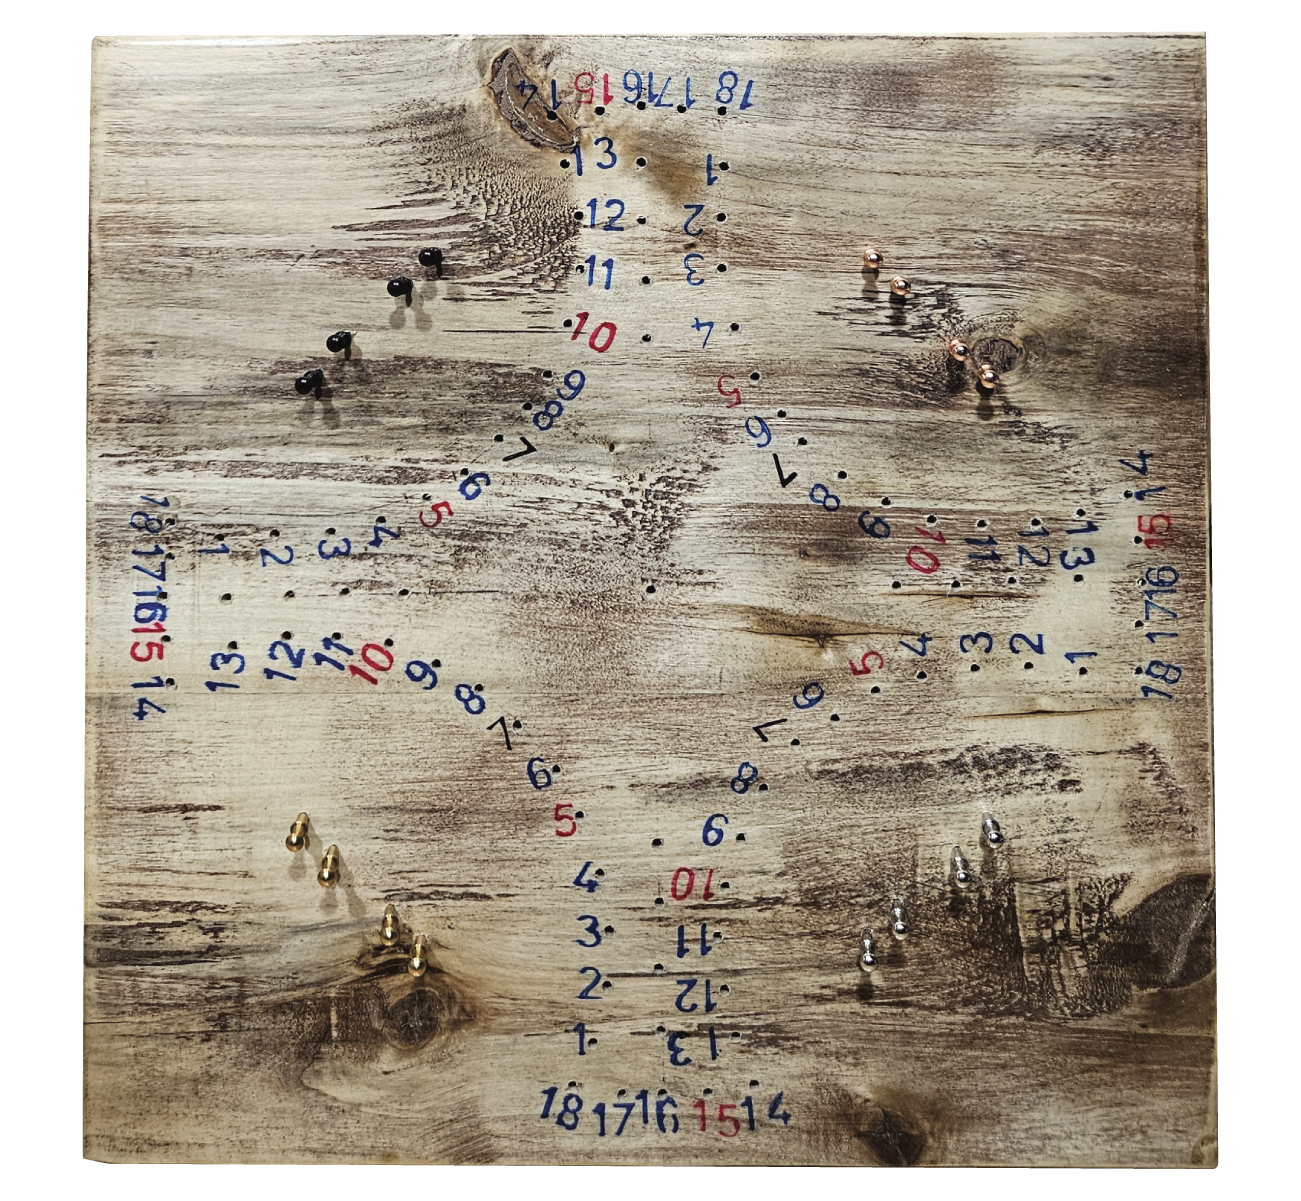 14 15 16 17 18
13 1
12 2
11 3
10 4
9 5
8 6
7 7
6 8
5 9
4 3 2 1 18
10 11 12 13 14
17 16 15
15 16 17
14 13 12 11 10 9
5 4 3 2 1 18
8 6
7 7
6 8
5 9
4 10
3 11
2 12
1 13
18 17 16 15 14